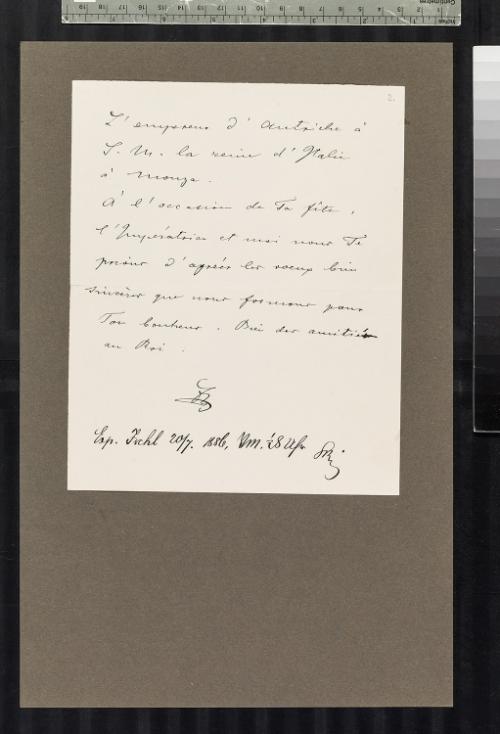 2.
L'empereur d'Autriche à
S. M. la reine d'Italie
à Monza.
À l'occasion de Ta fête,
l'Impératrice et moi nous Te
prions d'agréer les voeux bien
sincères que nous formons pour
Ton bonheur. Bien des amitiés
au Roi.
Exp. Ischl 20/7. 1886, Vm. ½8 Uhr
Centimetres
Inches